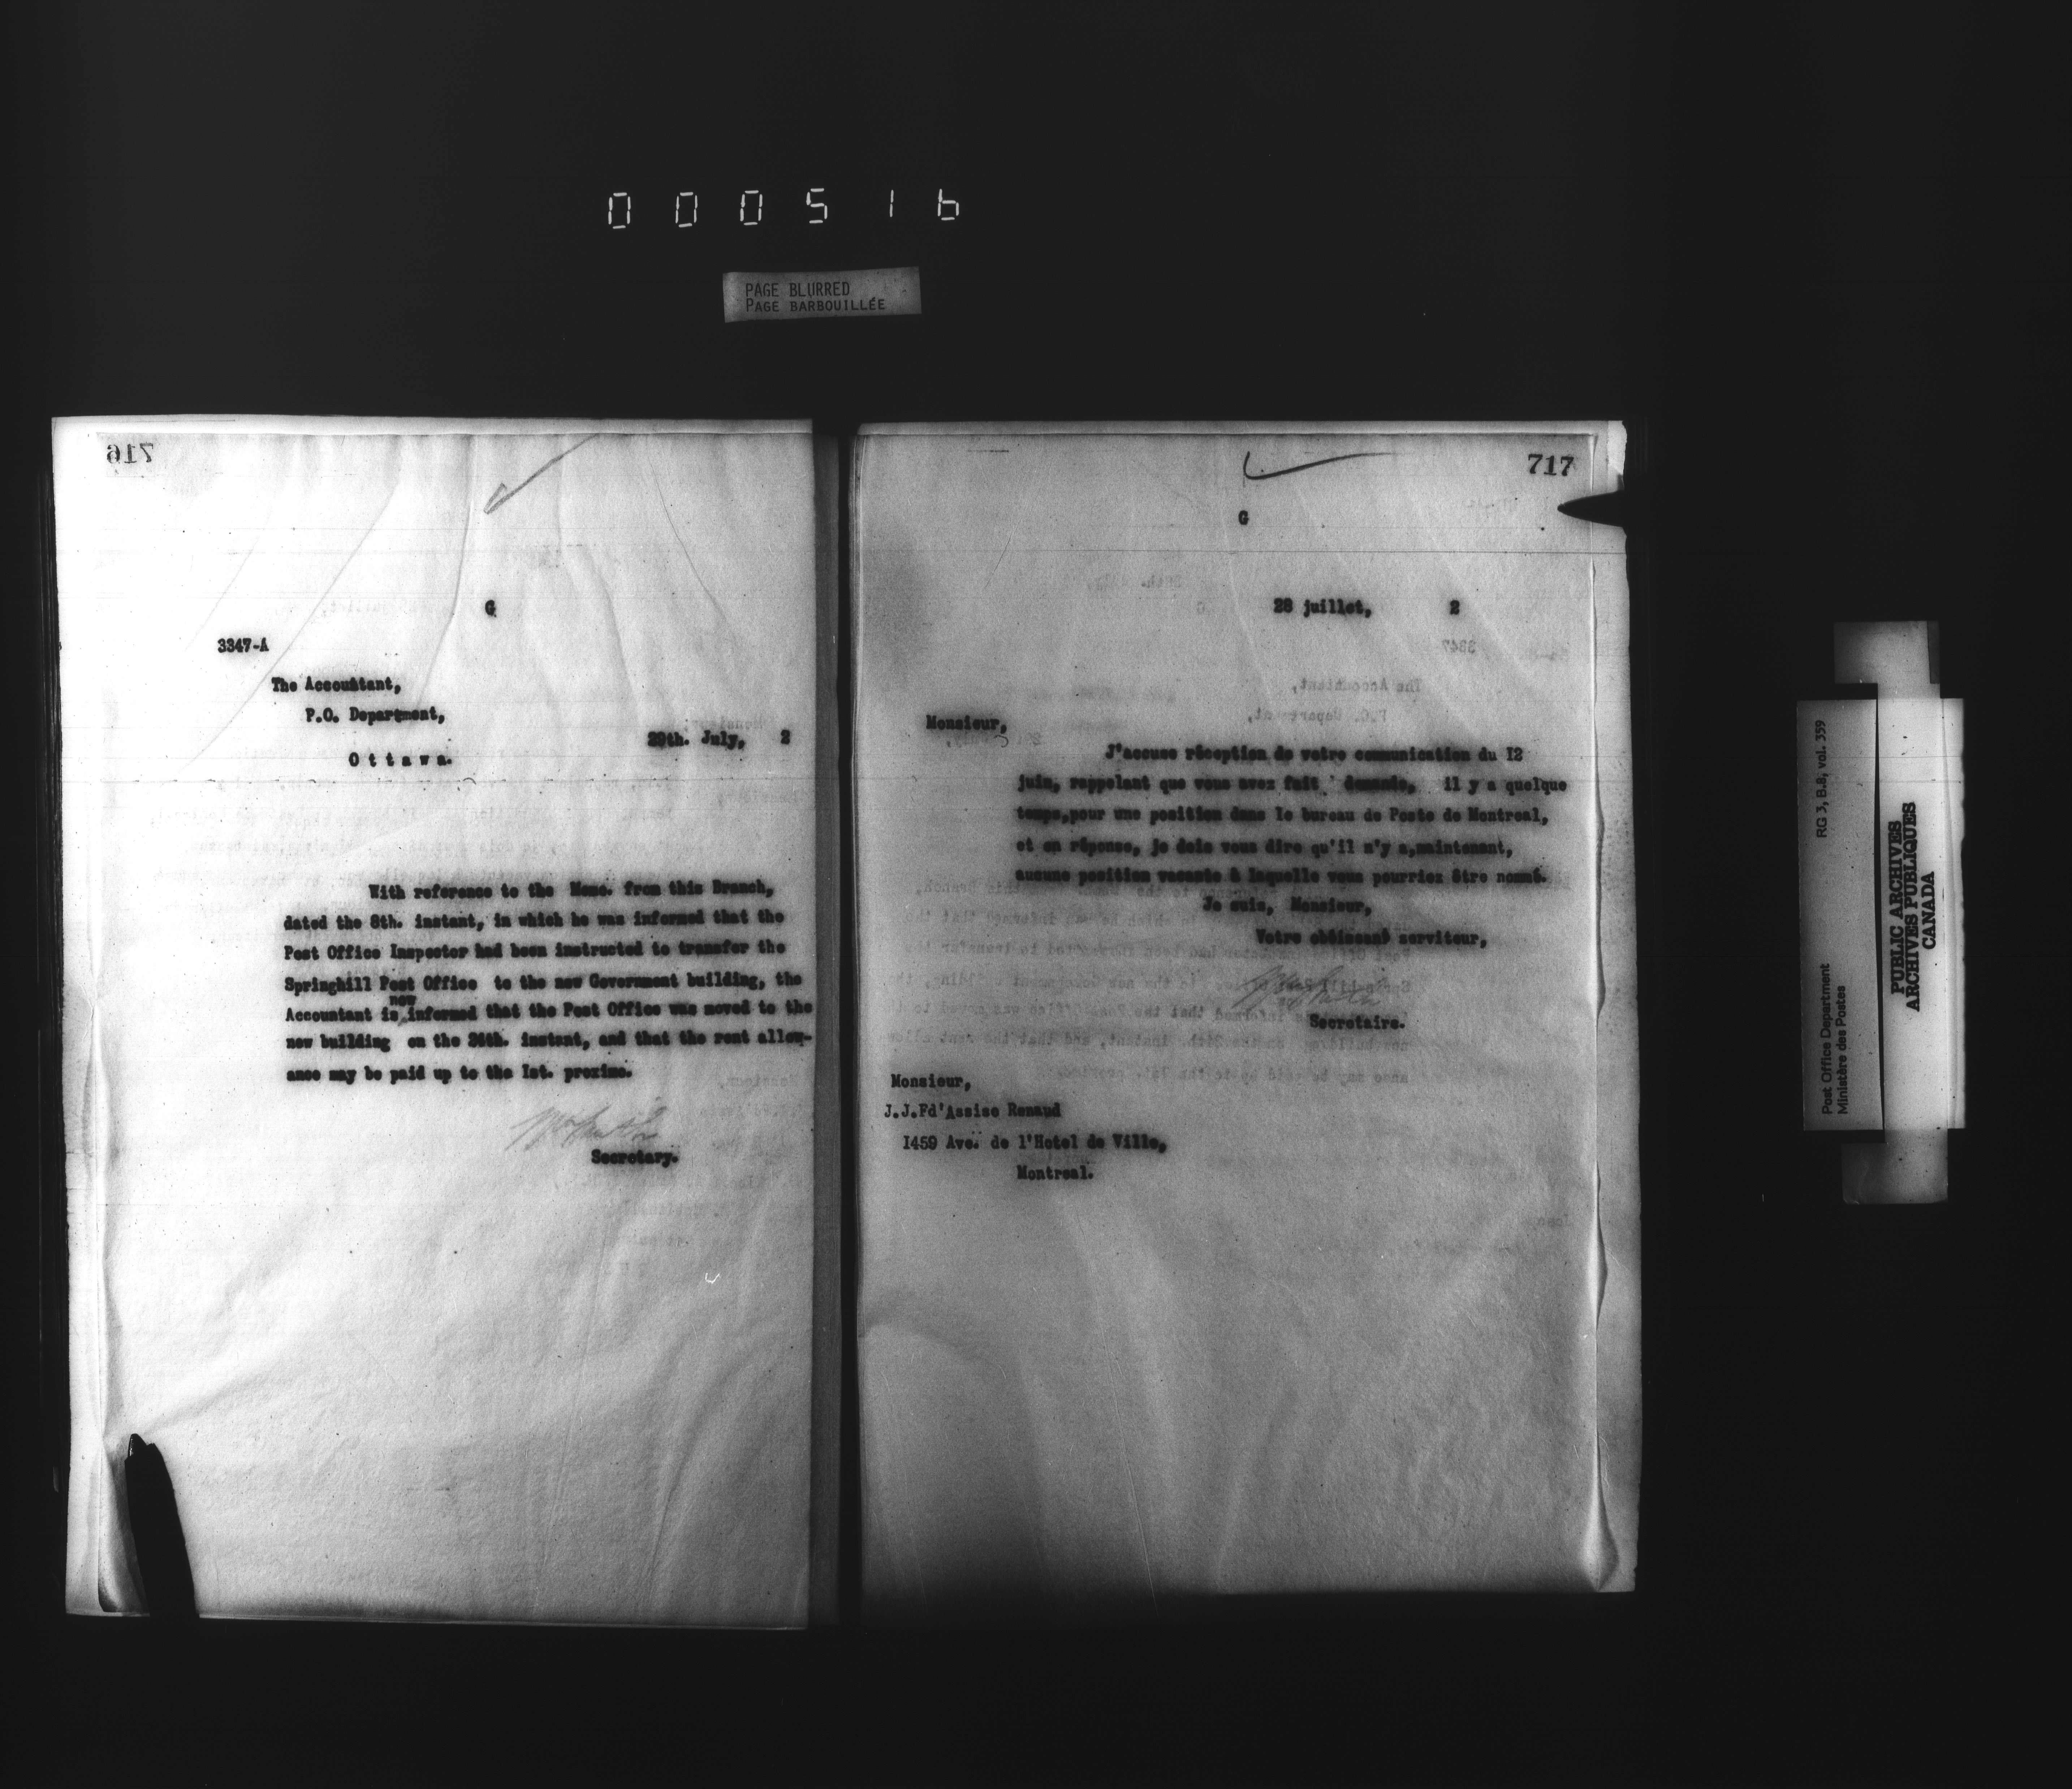 000516
PAGE BLURRED
PAGE BARBOUILLÉE
716
G
3347-A
The Accountant,
P.O. Department,
29th. July, 2
Ottawa.
With reference to the Memo. from this Branch,
dated the 8th. instant, in which he was informed that the
Post Office Inspector had been instructed to transfer the
Springhill Post Office to the new Government building, the
now
Accountant is informed that the Post Office was moved to the
new building on the 24th. instant, and that the rent allow-
ance may be paid up to the 1st. proximo.
Secretary.
717
G
28 juillet, 2
Monsieur,
J'accuse réception de votre communication du 12
juin, rappelant que vous avez fait demande, il y a quelque
temps,pour une position dans le bureau de Poste de Montreal,
et en réponse, je dois vous dire qu'il n'y a,maintenant,
aucune position vacante à laquelle vous pourriez être nommé.
Je suis, Monsieur,
Votre obéissant serviteur,
Secretaire.
Monsieur,
J.J.Fd'Assise Renaud
1459 Ave. de l'Hotel de Ville,
Montreal.
Post Office Department
Ministère des Postes
RG 3, B.8, vol. 359
PUBLIC ARCHIVES
ARCHIVES PUBLIQUES
CANADA